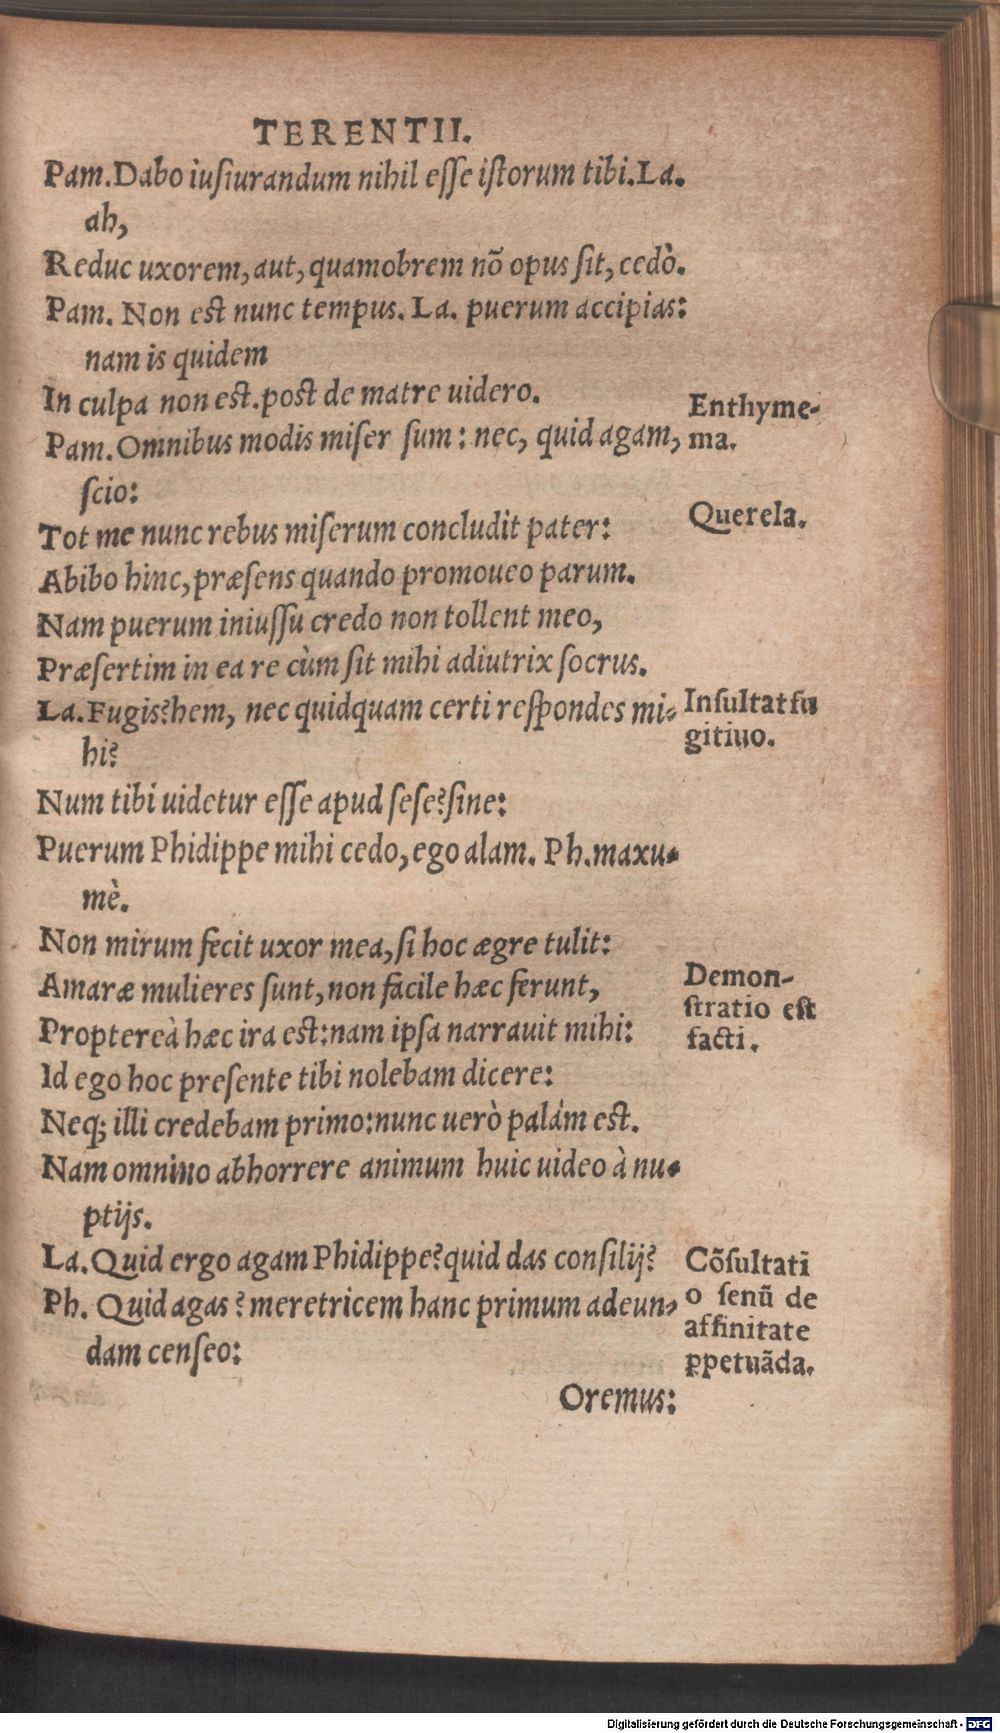 TERENTII.
Pam. Dabo iusiurandum nihil esse istorum tibi. La.
ah,
Reduc uxorem, aut, quamobrem nō opus sit, cedò.
Pam. Non est nunc tempus. La. puerum accipias:
nam is quidem
In culpa non est. post de matre uidero.
Pam. Omnibus modis miser sum: nec, quid agam,
scio:
Tot me nunc rebus miserum concludit pater:
Abibo hinc, præsens quando promoueo parum.
Nam puerum iniussu credo non tollent meo,
Præsertim in ea re cùm sit mihi adiutrix socrus.
La. Fugis? hem, nec quidquam certi respondes mi-
hi?
Num tibi uidetur esse apud sese? sine:
Puerum Phidippe mihi cedo, ego alam. Ph. maxu-
mè.
Non mirum fecit uxor mea, si hoc ægre tulit:
Amaræ mulieres sunt, non facile hæc ferunt,
Proptereà hæc ira est: nam ipsa narrauit mihi:
Id ego hoc presente tibi nolebam dicere:
Neq; illi credebam primo: nunc uerò palàm est.
Nam omnino abhorrere animum huic uideo à nu-
ptijs.
La. Quid ergo agam Phidippe? quid das consilij?
Ph. Quid agas? meretricem hanc primum adeun-
dam censeo:
Oremus:
Enthyme-
ma.
Querela.
Insultat fu
gitiuo.
Demon-
stratio est
facti.
Cōsultati
o senū de
affinitate
ꝑpetuāda.
Digitalisierung gefördert durch die Deutsche Forschungsgemeinschaft - DFG